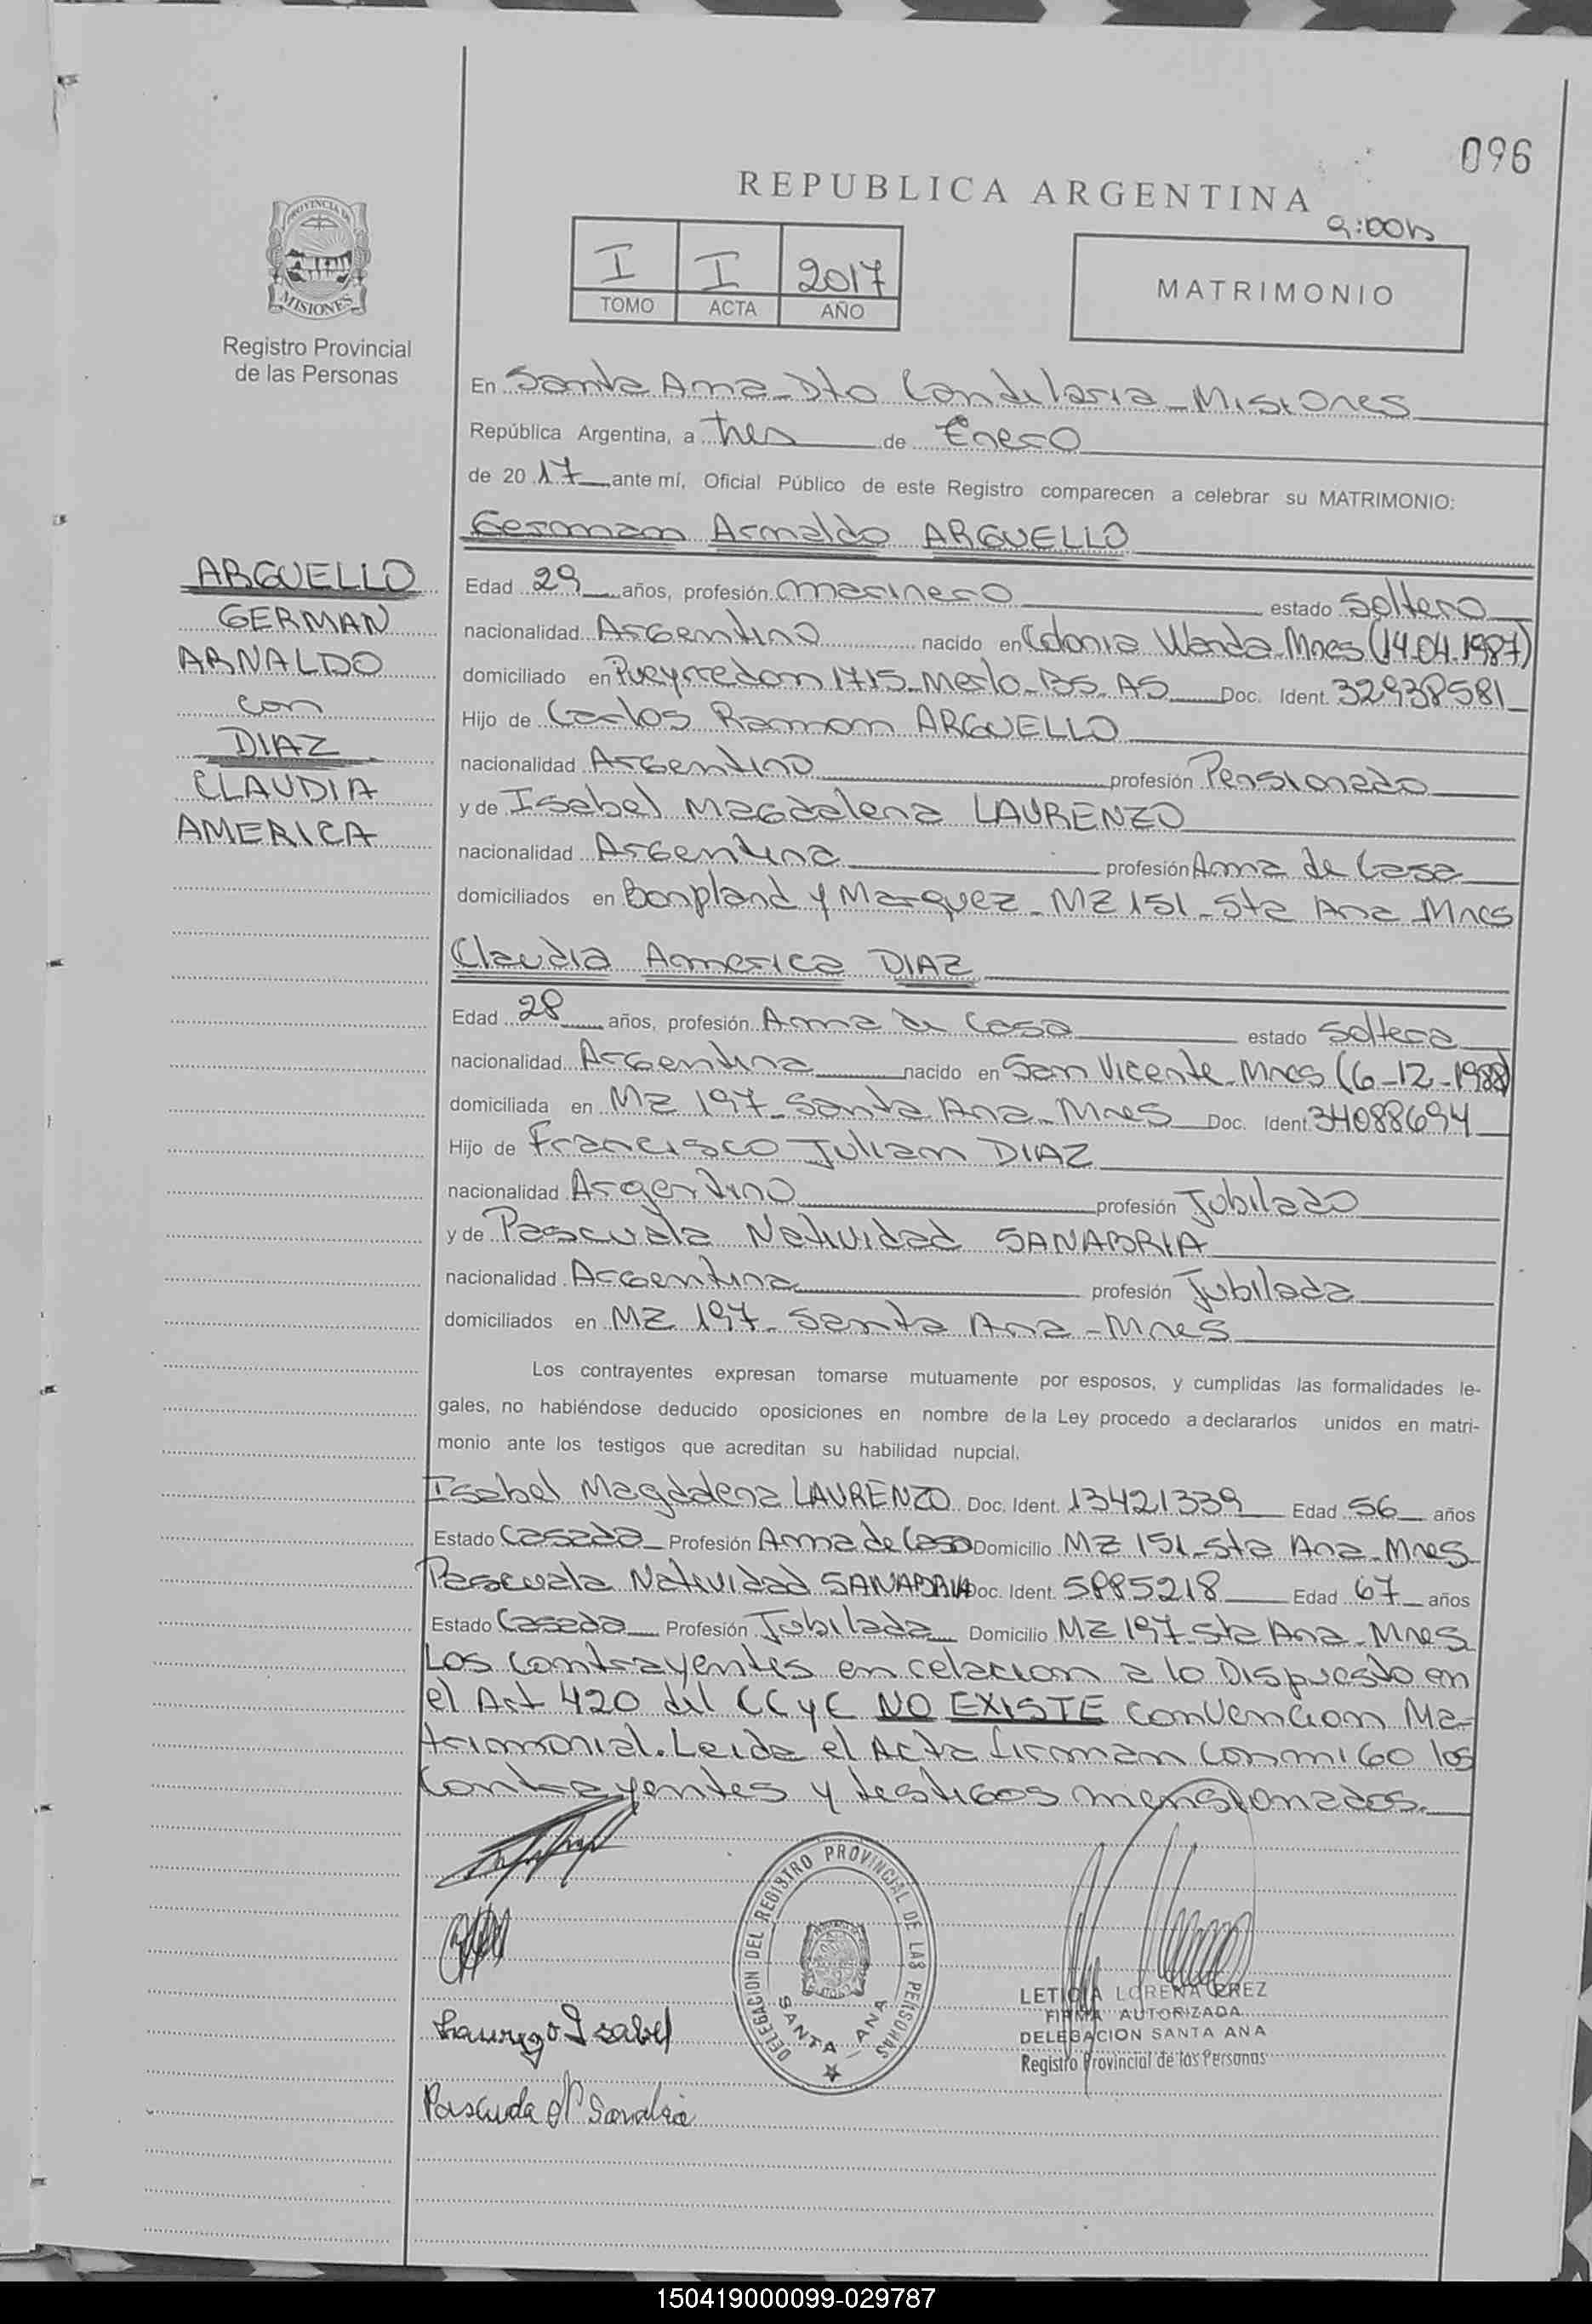 096
REPUBLICA ARGENTINA
9:00h
PROVINCIA DE
MISIONES
I I 2017
TOMO ACTA AÑO
MATRIMONIO
Registro Provincial
de las Personas
En Santa Ana - Dto Candelaria - Misiones
República Argentina, a tres de Enero
de 2017 ante mí, Oficial Público de este Registro comparecen a celebrar su MATRIMONIO:
German Arnaldo ARGUELLO
ARGUELLO
GERMAN
ARNALDO
con
DIAZ
CLAUDIA
AMERICA
Edad 29 años, profesión marinero estado Soltero
nacionalidad Argentino nacido en Colonia Wanda Mnes (14.04.1987)
domiciliado en Pueyrredon 1715 - Merlo - BS. AS Doc. Ident. 32938581
Hijo de Carlos Ramon ARGUELLO
nacionalidad Argentino profesión Pensionado
y de Isabel Magdalena LAURENZO
nacionalidad Argentina profesión Ama de Casa
domiciliados en Bonpland y Marquez - MZ 151 - Sta Ana Mnes
Claudia America DIAZ
Edad 28 años, profesión Ama de Casa estado Soltera
nacionalidad Argentina nacido en San Vicente - Mnes (6-12-1988)
domiciliada en MZ 197 - Santa Ana - Mnes Doc. Ident. 34088694
Hijo de Francisco Julian DIAZ
nacionalidad Argentino profesión Jubilado
y de Pascuala Natividad SANABRIA
nacionalidad Argentina profesión Jubilada
domiciliados en MZ 197 - Santa Ana - Mnes
Los contrayentes expresan tomarse mutuamente por esposos, y cumplidas las formalidades le-
gales, no habiéndose deducido oposiciones en nombre de la Ley procedo a declararlos unidos en matri-
monio ante los testigos que acreditan su habilidad nupcial.
Isabel Magdalena LAURENZO Doc. Ident. 13421339 Edad 56 años
Estado Casada Profesión Ama de Casa Domicilio MZ 151 - Sta Ana - Mnes
Pascuala Natividad SANABRIA Doc. Ident. 5885218 Edad 67 años
Estado Casada Profesión Jubilada Domicilio MZ 197 - Sta Ana - Mnes
Los contrayentes en relacion a lo Dispuesto en
el Art 420 del CCyC NO EXISTE convencion Ma-
trimonial. Leida el Acta firman conmigo los
contrayentes y testigos mensionados.
DELEGACION DEL REGISTRO PROVINCIAL DE LAS PERSONAS
SANTA ANA
LETICIA LORENA PREZ
FIRMA AUTORIZADA
DELEGACION SANTA ANA
Registro Provincial de las Personas
Laurenzo Isabel
Pascuala N Sanabria
150419000099-029787